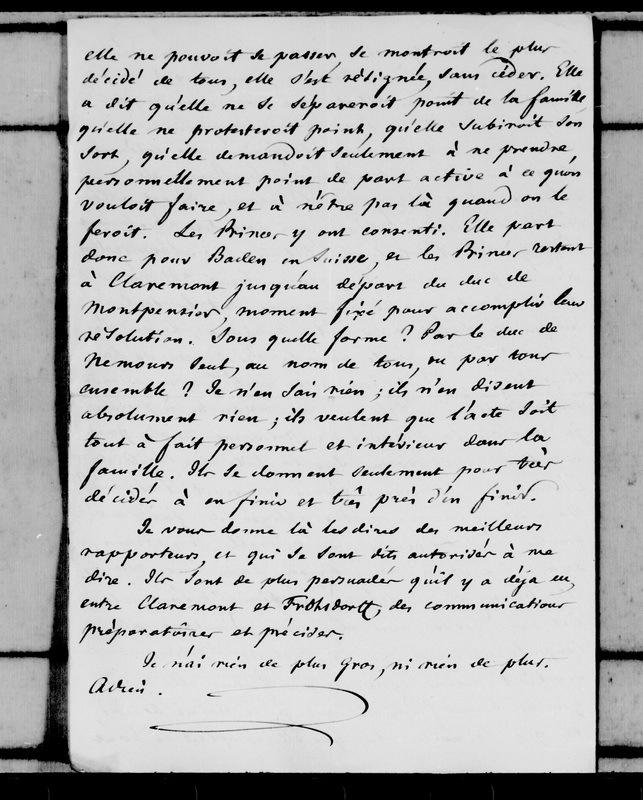 elle ne pouvoit se passer, se montroit le plus
décidé de tous, elle s'est résignée, sans céder. Elle
a dit qu'elle ne se séparerait point de la famille
qu'elle ne protesteroit point, qu'elle subiroit son
sort, qu'elle demandoit seulement à ne prendre
personnellement point de part active à ce qu'on
vouloit faire, et à n'être pas là quand on le
feroit. Les Princes y ont consenti. Elle part
donc pour Baden en Suisse, et les Princes restent
à Claremont jusqu'au départ du duc de
Montpensier, moment fixé pour accomplir leur
résolution. Sous quelle forme ? Par le duc de
Nemours seul, au nom de tous, ou par tous
ensemble ? Je n'en sais rien ; ils n'en disent
absolument rien ; ils veulent que l'acte soit
tout à fait personnel et intérieur dans la
famille. Ils se donnent seulement pour très
décidés à en finir et très près d'en finir.
Je vous donne là les dires des meilleurs
rapporteurs, et qui se sont dits autorisés à me
dire. Ils sont de plus persuadés qu'il y a déja eu,
entre Claremont et Frohsdorff, des communications
préparatoires et précises.
Je n'ai rien de plus gros, ni rien de plus.
Adieu.